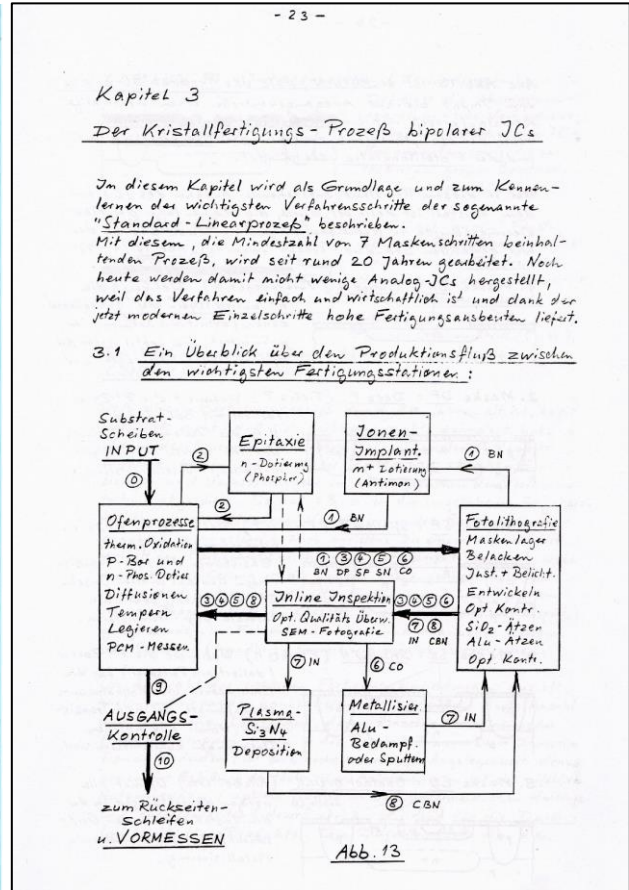 - 23 -
Kapitel 3
Der Kristallfertigungs-Prozeß bipolarer JCs
Jn diesem Kapitel wird als Grundlage und zum Kennen-
lernen der wichtigsten Verfahrensschritte der sogenannte
"Standard-Linearprozeß" beschrieben.
Mit diesem, die Mindestzahl von 7 Maskenschritten beinhal-
tenden Prozeß, wird seit rund 20 Jahren gearbeitet. Noch
heute werden damit nicht wenige Analog-JCs hergestellt,
weil das Verfahren einfach und wirtschaftlich ist und dank der
jetzt modernen Einzelschritte hohe Fertigungsausbeuten liefert.
3.1 Ein Überblick über den Produktionsfluß zwischen
den wichtigsten Fertigungsstationen:
Substrat-
Scheiben
INPUT
⓪
②
Epitaxie
n-Dotierung
(Phosphor)
②
Jonen-
Implant.
(Antimon)
① BN
① BN
Ofenprozesse
therm. Oxidation
P-Bor und
n-Phos. Dotier.
Diffusionen
Tempern
Legieren
PCM-Messen
① ③ ④ ⑤ ⑥
BN DP SP SN CO
Fotolithografie
Maskenlager
Belacken
Just. + Belicht.
Entwickeln
Opt. Kontr.
SiO₂-Ätzen
Alu-Ätzen
Opt. Kontr.
③ ④ ⑤ ⑧
Inline Inspektion
Opt. Qualitäts Überw.
SEM-Fotografie
③ ④ ⑤ ⑥
⑦ ⑧
IN CBN
⑦ IN
⑥ CO
⑨
AUSGANGS-
Kontrolle
⑩
Plasma-
Si₃N₄
Deposition
Metallisier.
Alu-
Bedampf.
oder Sputtern
⑦ IN
⑧ CBN
zum Rückseiten-
Schleifen
u. VORMESSEN
Abb. 13